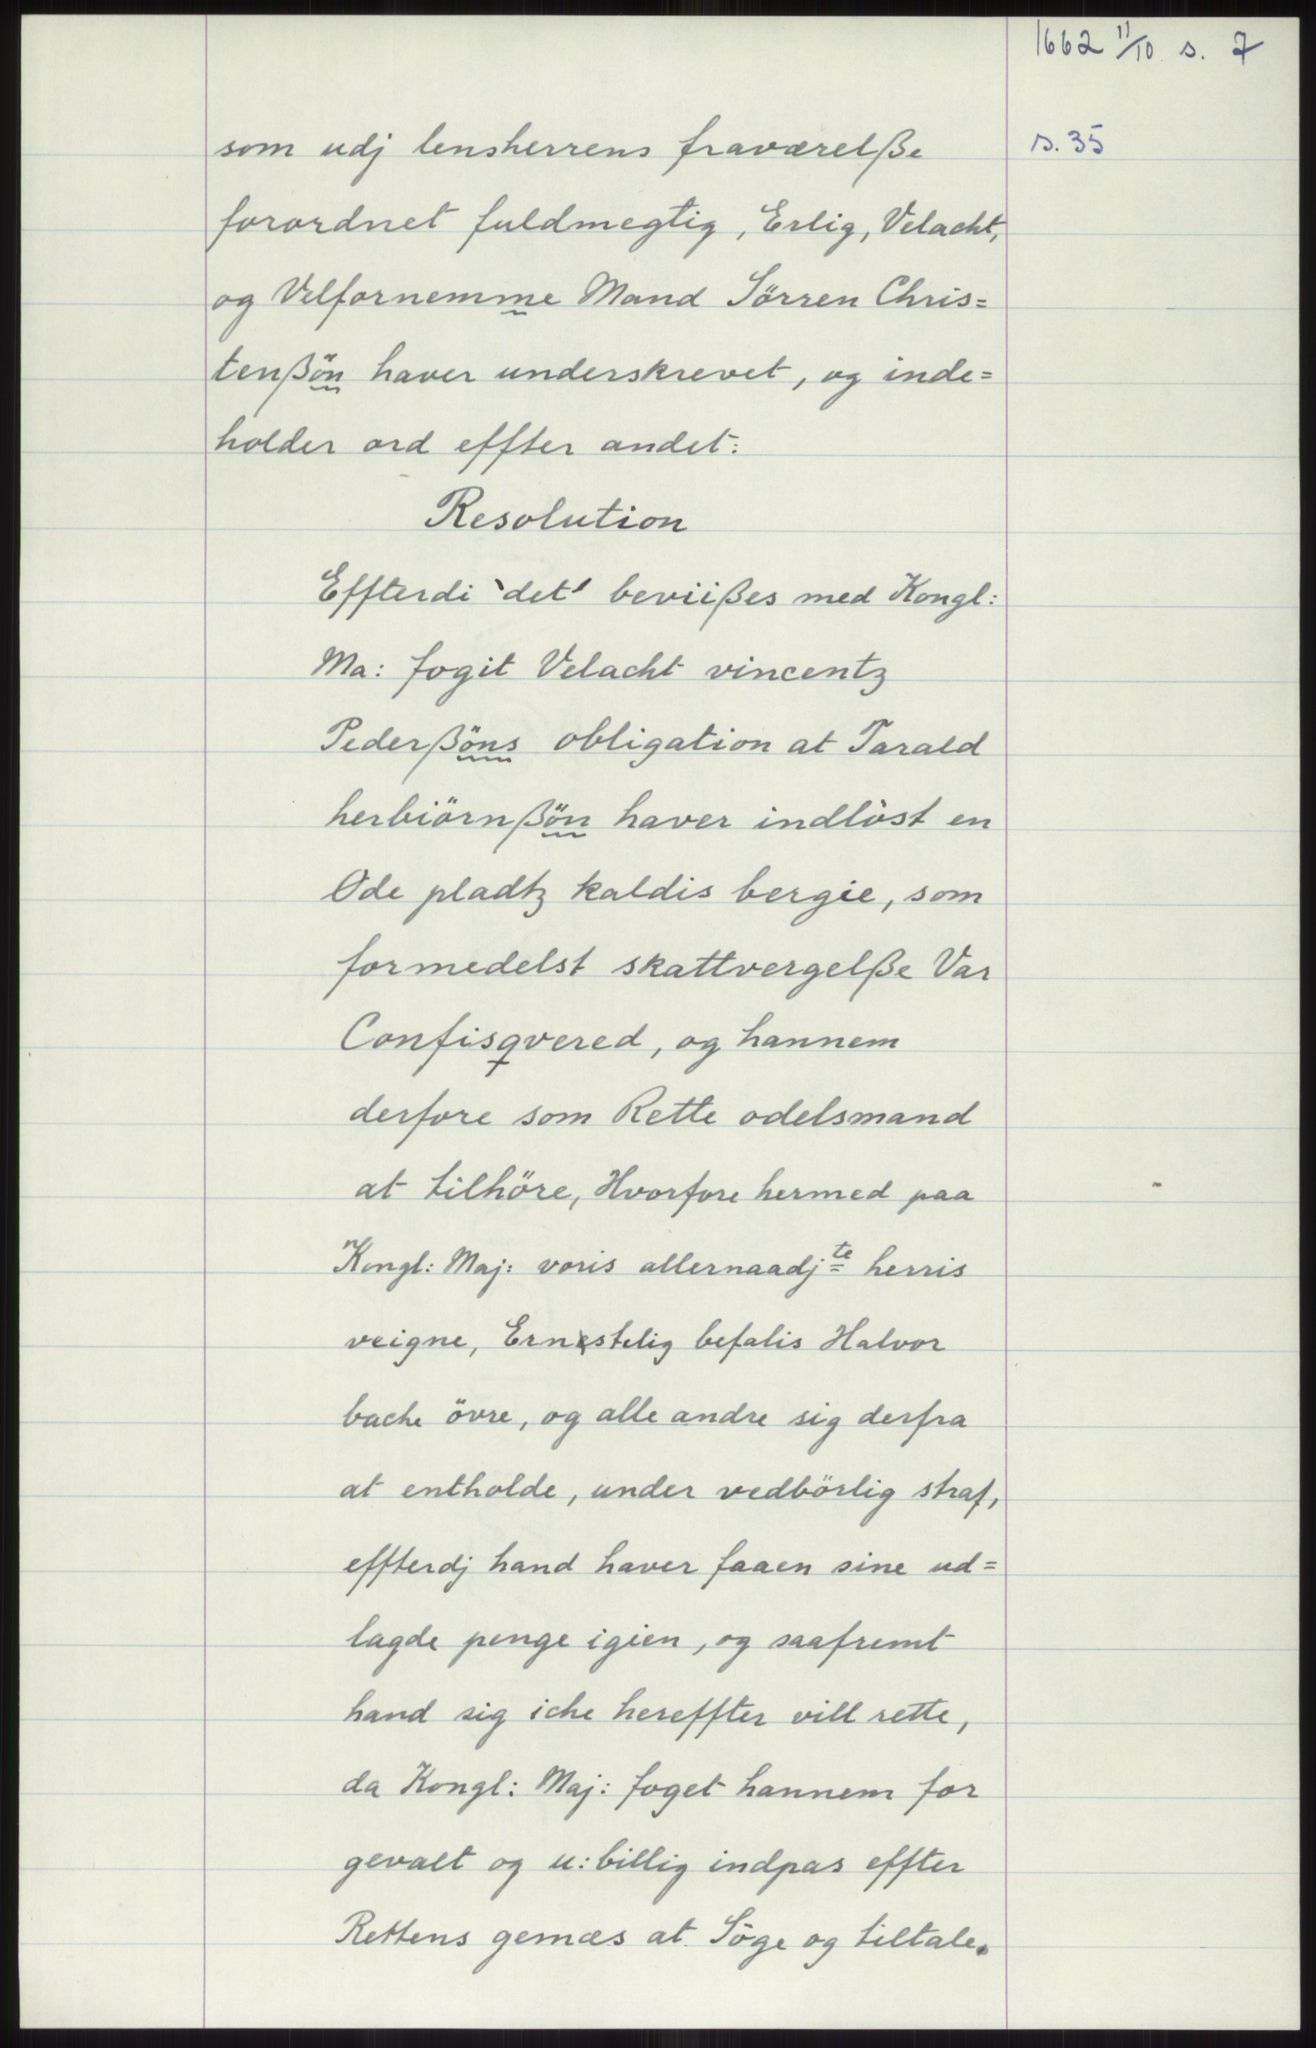 1662 11/10 s. 7
som udj lensherrens fraværelße
s. 35
forordnet fuldmegtig, Erlig, Velacht,
og Velfornemme Mand Sörren Chris=
tenßön haver underskrevet, og inde=
holder ord effter andet:
Resolution
Effterdi `det´ beviißes med Kongl:
Ma: fogit Velacht vincentz
Pederßöns obligation at Tarald
herbiörnßön haver indlöst en
Øde pladtz kaldis bergie, som
formedelst skattvergelße Var
Confisqvered, og hannem
derfore som Rette odelsmand
at tilhöre, Hvorfore hermed paa
Kongl: Maj: voris allernaadjte herris
veigne, Ernstelig befalis Halvor
bache övre, og alle andre sig derfra
at entholde, under vedbörlig straf,
effterdj hand haver faaen sine ud=
lagde penge igien, og saafremt
hand sig iche hereffter vill rette,
da Kongl: Maj: foget hannem for
gevalt og u:billig indpas effter
Rettens gemæs at Söge og tiltale.